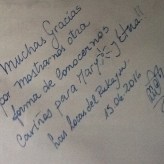 Muchas Gracias
por mostrarnos otra
forma de conocernos
Cariños para Mary
Las locas del
13.06.2016